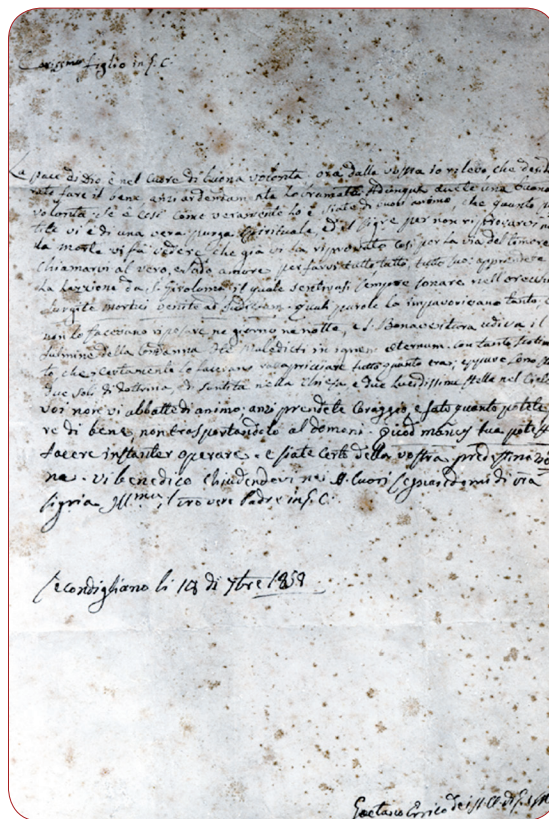 Carissimo figlio in G. C.
La pace di Dio è nel cuore di buona volontà ora dalla vostra io rilevo, che
fare il bene, anzi ardentemente lo bramate. Adunque
volontà, e se è così come veramente lo è, state di buon animo, che questo
vi è di una vera purga spirituale, ed il
vi fà vedere, che già vi ha risparmiato così per la via del timore
chiamarvi al vero, e sodo amore per farvi tutto tutto, tutto suo: apprendete
La lezzione da S. Girolomo il quale sentivasi sempre sonare nell'orecchio
Surgite mortui venite ad Judicium, quali parole lo impaurivano tanto
non lo facevano riposare ne giorno ne notte, e S. Bonaventura udiva il
fulmine della condanna Ite maledicti in ignem eternum. con tanto
che certamente lo facevano raccapricciare tutto quanto era; eppure sono
due soli di dottrina, di santità nella Chiesa e due lucidissime stelle nel Cielo
voi non vi abbattete di animo: anzi prendete coraggio, e fate quanto potete
re di bene, non trasportandolo al domani. quod manus tua potest
facere instanter operare. e siate certo della vostra predestinazio
ne. vi benedico chiudendovi ne' SS. Cuori segnandomi di V.ra
Signria Ill.ma
Secondigliano li 18 di 7bre 1858
Gaetano Errico dei SS. CC. di G. e M.